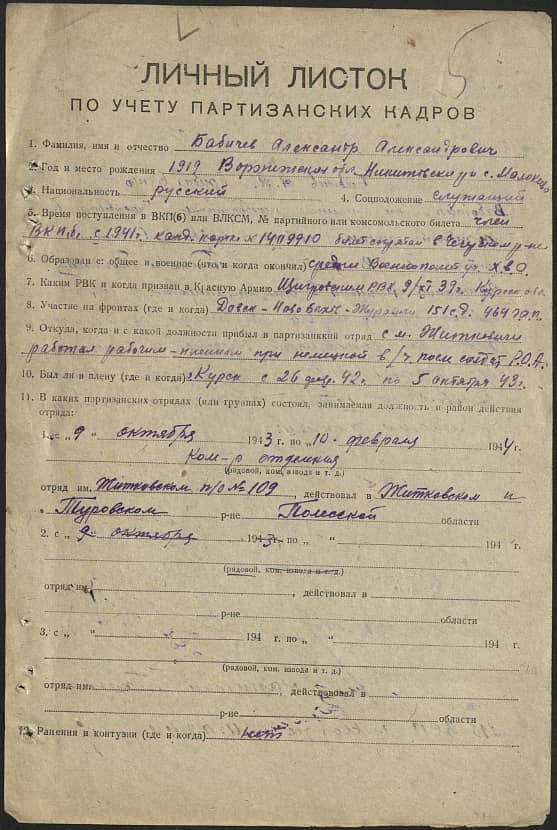 ЛИЧНЫЙ ЛИСТОК
ПО УЧЕТУ ПАРТИЗАНСКИХ КАДРОВ
1. Фамилия, имя и отчество Бабичев Александр Александрович
2. Год и место рождения 1919 Воронежская обл. Никитовский с.
3. Национальность русский 4. Соцположение служащий
5. Время поступления в ВКП(б) или ВЛКСМ, № партийного или комсомольского билета член
ВКПб. с 1941г. канд. парт. № 1409910 билет
6. Образование: общее и военное (что и когда окончил) среднее Военнополит уч. Х.В.О.
7. Каким РВК и когда призван в Красную Армию Щигровским РВК 9/XI 39г. Курск обл.
8. Участие на фронтах (где и когда) Довск - Новобыхов - Журавичи 151 с.д. 464 г.а.п.
9. Откуда, когда и с какой должности прибыл в партизанский отряд с м. Житковичи
работал рабочим - при немецкой в/ч Р.О.А.
10. Был ли в плену (где и когда) г. Курск с 26 фев. 42г. по 5 октября 43г.
11. В каких партизанских отрядах (или группах) состоял, занимаемая должность и район действия
отряда:
1. с „ 9 “ октября 1943 г. по „ 10 “ февраля 1944 г.
Ком-р отделения
(рядовой, ком. взвода и т. д.)
отряд им. Житковском п/о № 109, действовал в Житковском и
Туровском р-не Полесской области
2. с „ 9 “ октября 1943 г. по „ “ 194 г.
(рядовой, ком. взвода и т. д.)
отряд им. , действовал в
р-не области
3. с „ “ 194 г. по „ “ 194 г.
(рядовой, ком. взвода и т. д.)
отряд им. , действовал в
р-не области
12. Ранения и контузии (где и когда) нет